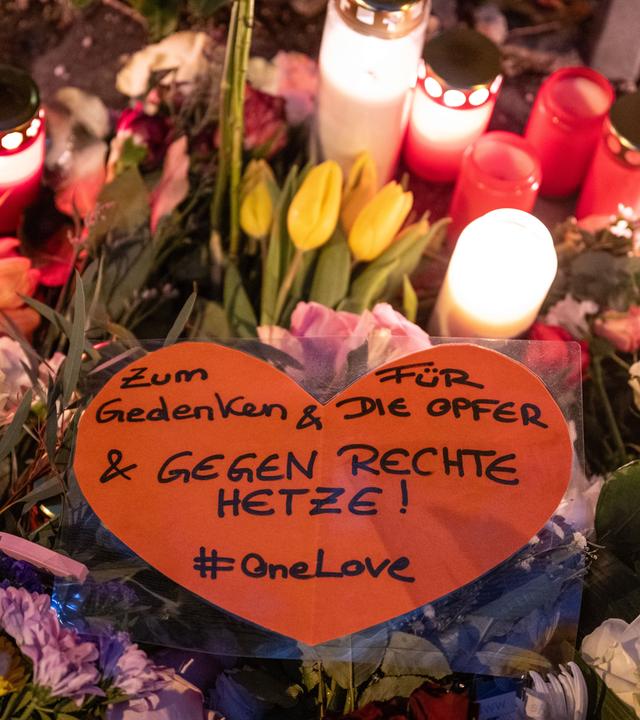 Zum
Gedenken & FÜR
DIE OPFER
& GEGEN RECHTE
HETZE!
#OneLove